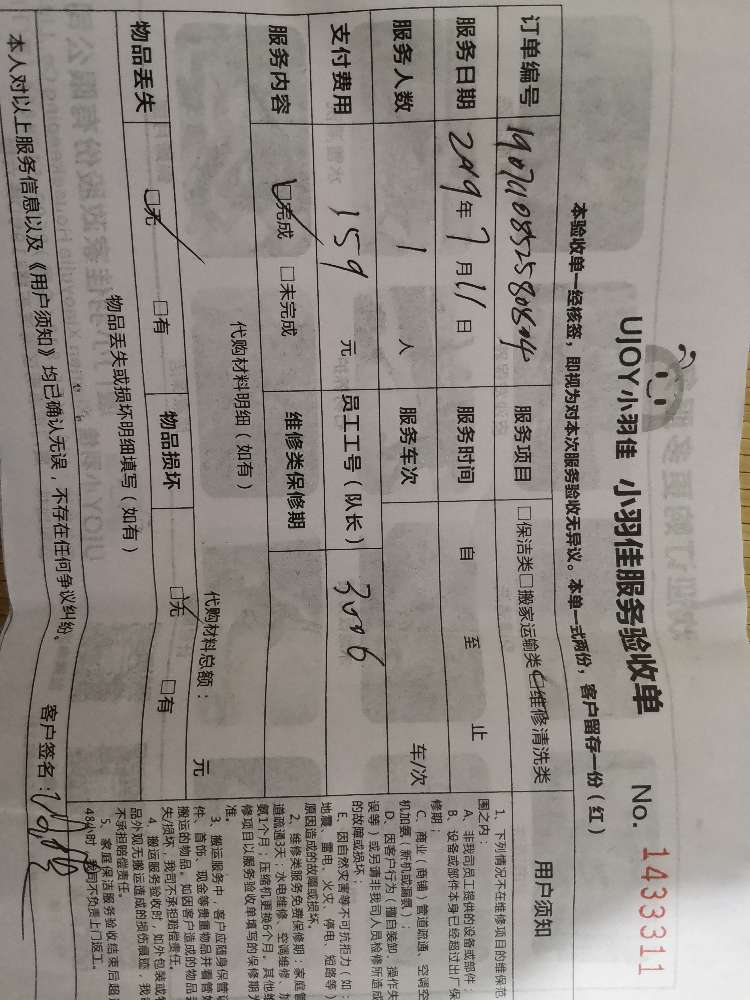 UJOY小羽佳 小羽佳服务验收单 No. 1433311
本验收单一经核签，即视为对本次服务验收无异议。本单一式两份，客户留存一份（红）
订单编号 服务项目 □保洁类□搬家运输类□维修清洗类 用户须知
服务日期 2019年7月11日 服务时间 自 至 止
服务人数 1 人 服务车次 车/次
支付费用 159 元 员工工号（队长） 3006
服务内容 □完成 □未完成 维修类保修期
代购材料明细（如有） 代购材料总额： 元
物品丢失 □无 □有 物品损坏 □无 □有
物品丢失或损坏明细填写（如有）
本人对以上服务信息以及《用户须知》均已确认无误，不存在任何争议纠纷。 客户签名：
1、下列情况不在维修项目的维保范
围之内：
A、非我司员工提供的设备或部件；
B、设备或部件本身已经超过出厂保
修期；
C、商业（商铺）管道疏通、空调空
机加氨（新机或漏氨）；
D、因客户行为（擅自装卸、操作失
误等）或另请非我司人员检修所造成
的故障或损坏；
E、因自然灾害等不可抗力（如：
地震、雷电、火灾、停电、短路等）
原因造成的故障或损坏。
2、维修类服务免费保修期：家庭管
道疏通3天；水电维修、空调维修、加
氨1个月；压缩机更换6个月。其他维
修项目以服务验收单填写的保修期为
准。
3、搬运服务中，客户应随身保管证
件、首饰、现金等贵重物品并看管好
搬运的物品。如因客户造成的物品丢
失/损坏，我司不承担赔偿责任。
4、搬运服务验收时，如外包装或物
品外观无搬运造成的损伤痕迹，我司
不承担赔偿责任。
5、家庭保洁服务验收结束后超过
48小时，我司不负责上门返工。